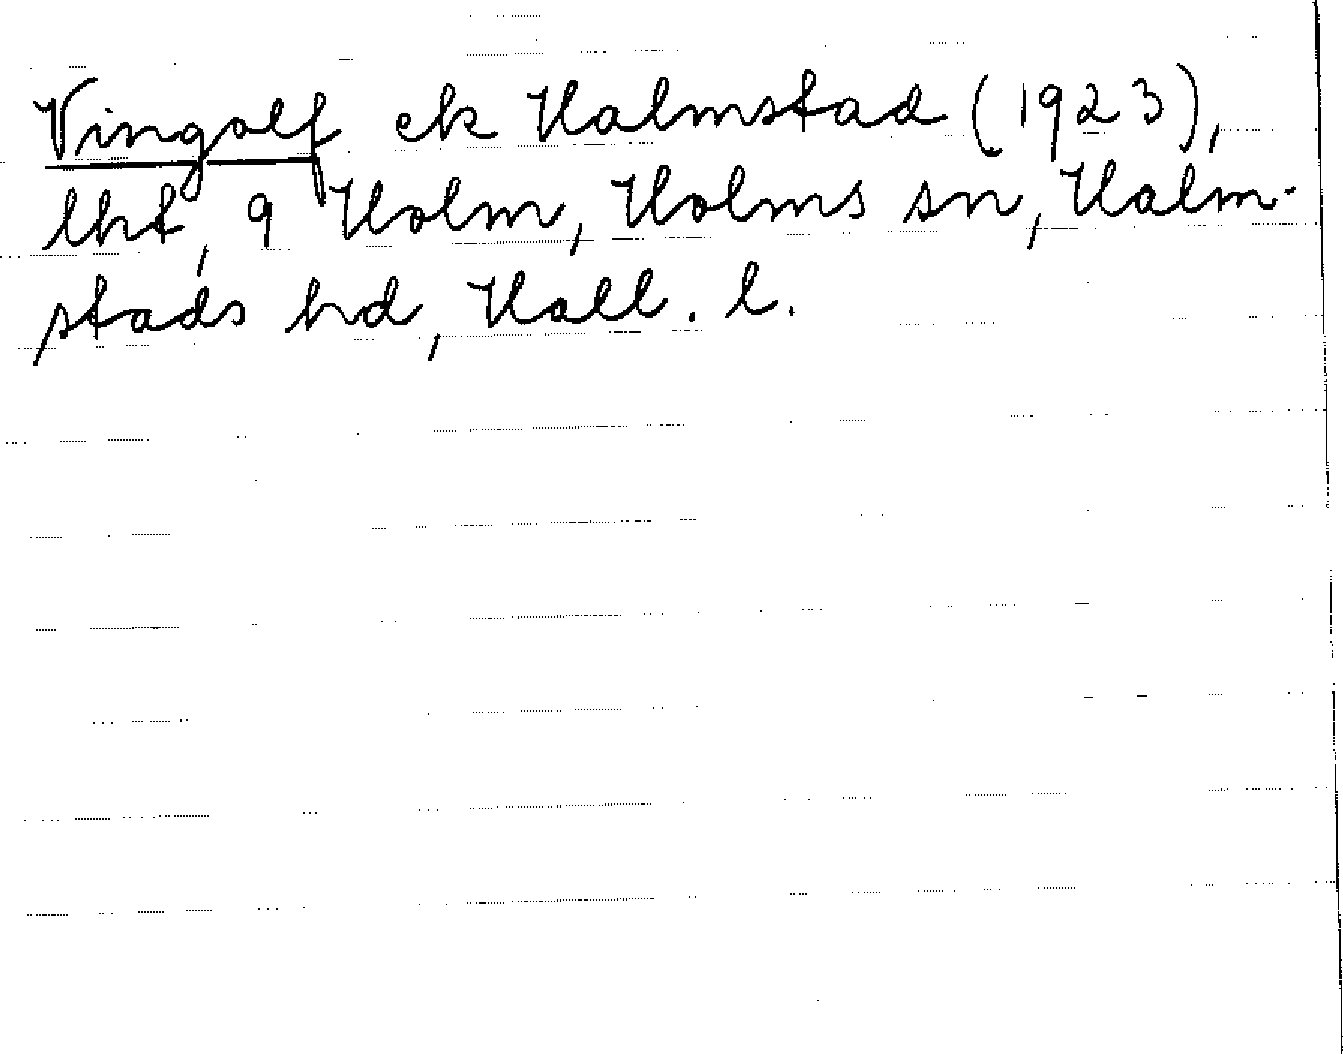 Vingolf ek Halmstad (1923),
lht, 9 Holm, Holms sn, Halm-
stads hd, Hall. l.